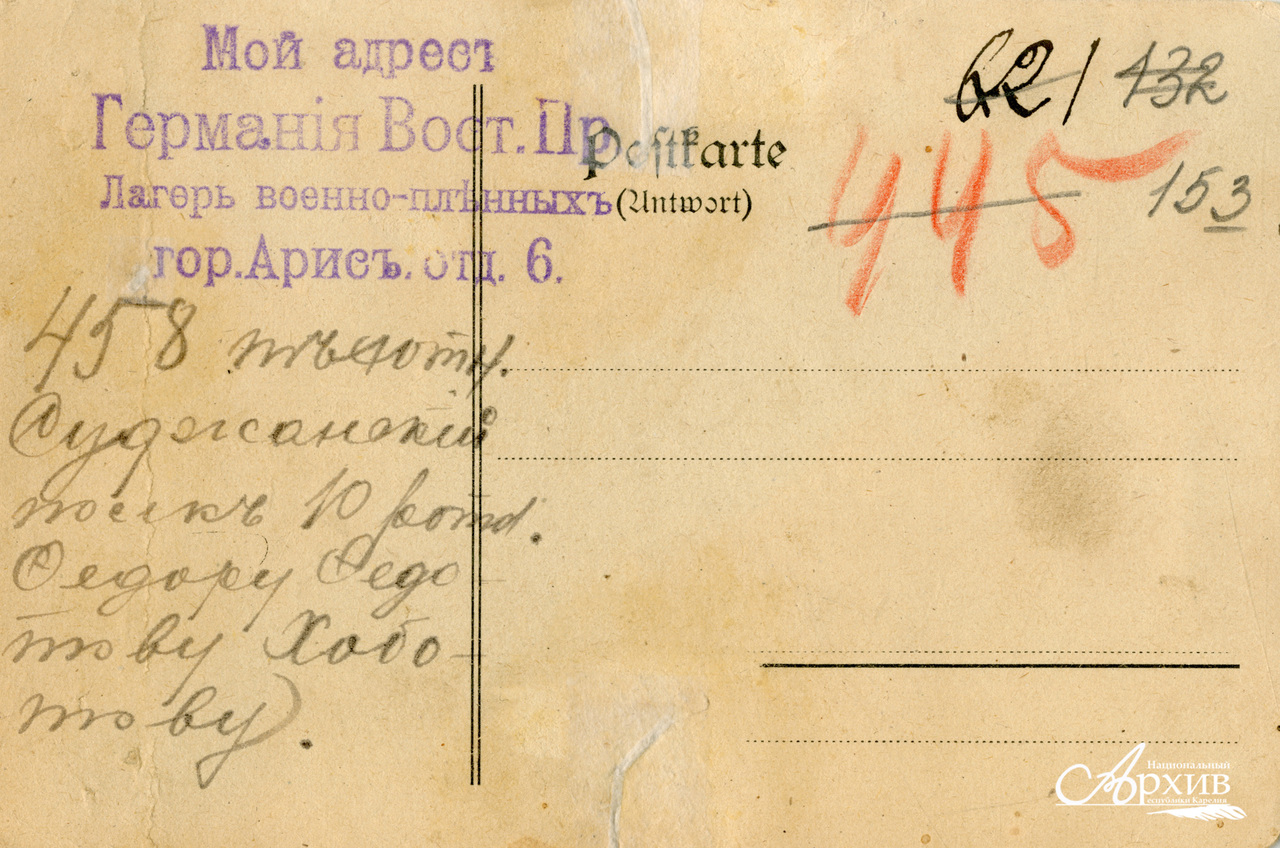 Мой адрест
Германія Вост. Пр.
Лагерь военно-плѣнныхъ
гор. Арисъ. отд. 6.
Postkarte
(Antwort)
221 132
445
153
458 пѣхотн.
Суджанскій
полкъ 10 рота.
Федору Федо
тову Хобо-
тову.
Национальный
Архив
Республики Карелия